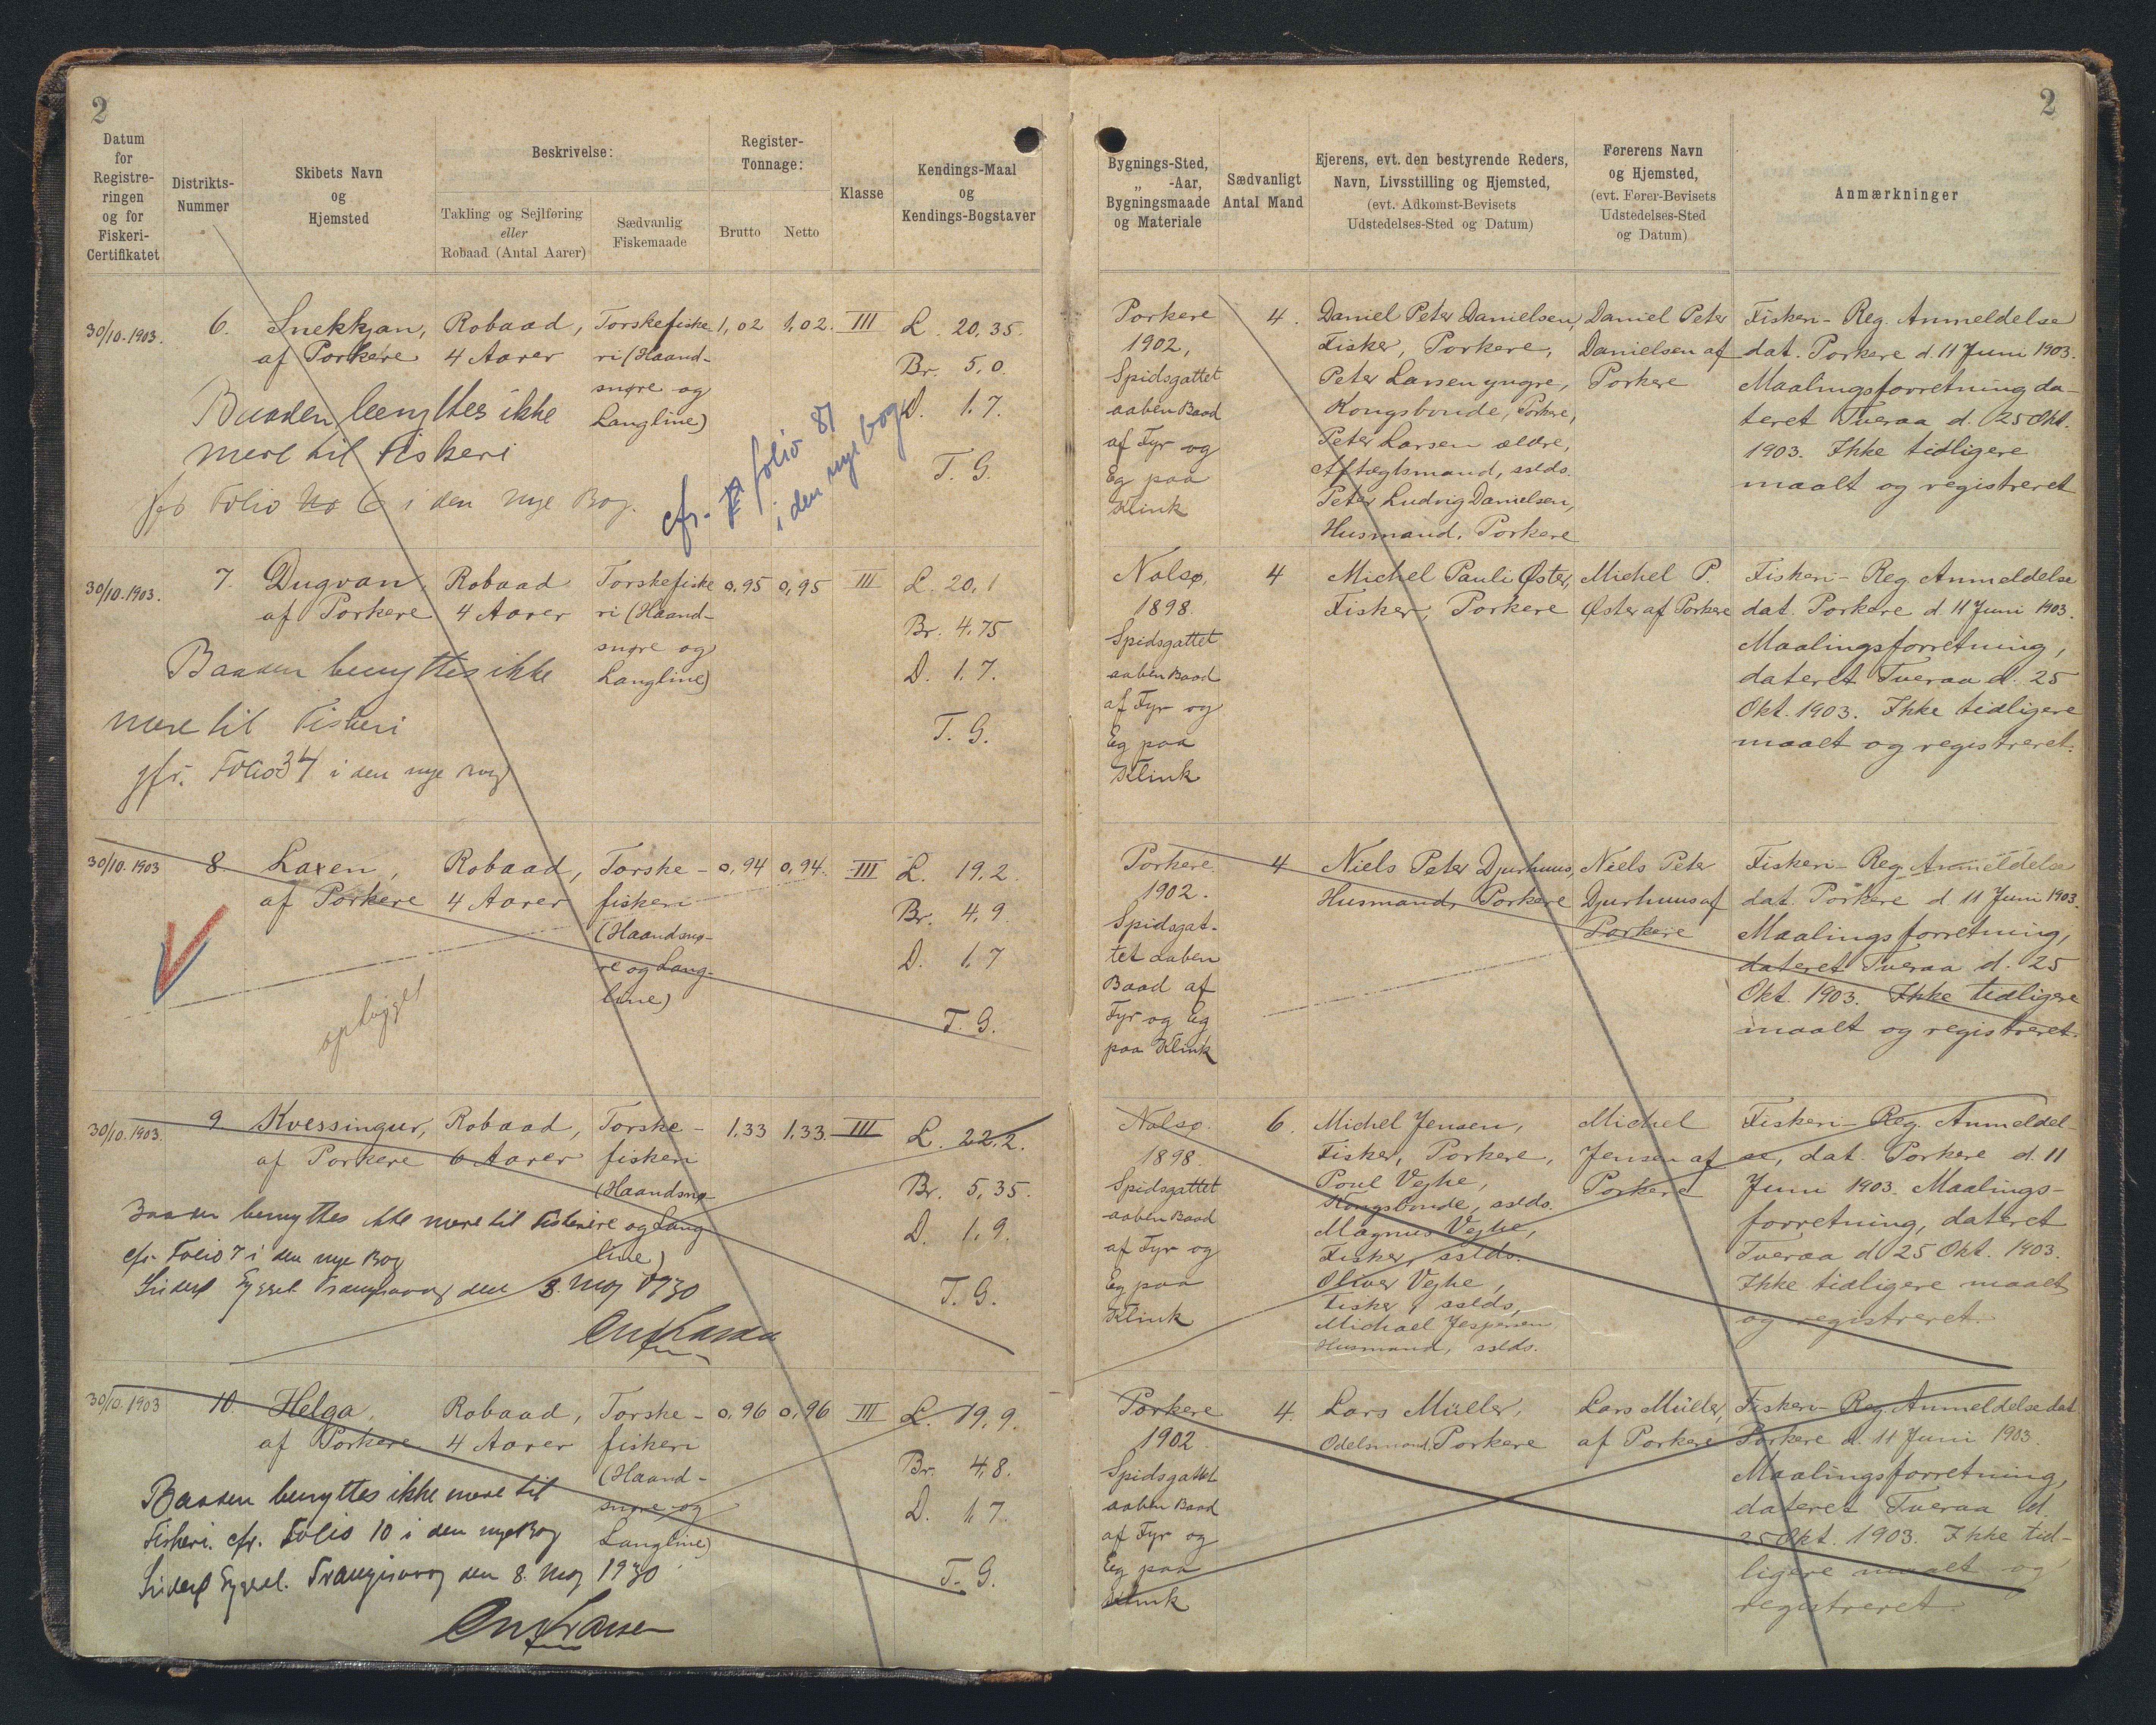 2
2
Datum
for
Registre-
ringen
og for
Fiskeri-
Certifikatet
Distrikts-
Nummer
Skibets Navn
og
Hjemsted
Beskrivelse:
Takling og Sejlføring
eller
Robaad (Antal Aarer)
Sædvanlig
Fiskemaade
Register-
Tonnage:
Brutto
Netto
Klasse
Kendings-Maal
og
Kendings-Bogstaver
Bygnings-Sted,
„ -Aar,
Bygningsmaade
og Materiale
Sædvanligt
Antal Mand
Ejerens, evt. den bestyrende Reders,
Navn, Livsstilling og Hjemsted,
(evt. Adkomst-Bevisets
Udstedelses-Sted og Datum)
Førerens Navn
og Hjemsted,
(evt. Fører-Bevisets
Udstedelses-Sted
og Datum)
Anmærkninger
30/10. 1903.
6.
Snekkjan,
af Porkere
Robaad,
4 Aarer
Torskefiske
ri (Haand-
snøre og
Langline)
1,02
1,02.
III
L. 20,35.
Br. 5,0.
D. 1.7.
T. G.
Baaden benyttes ikke
mere til Fiskeri
Folio No 6 i den nye Bog.
cfr. folio 87
i den nye bog
Porkere
1902,
Spidsgattet
aaben Baad
af Fyr og
Eg paa
Klink
4.
Daniel Peter Danielsen,
Fisker, Porkere,
Peter Larsen yngre,
Kongsbonde, Porkere,
Peter Larsen ældre,
Aftægtsmand, sslds.
Peter Ludvig Danielsen,
Husmand, Porkere
Daniel Peter
Danielsen af
Porkere
Fiskeri-Reg. Anmeldelse
dat. Porkere d. 11 Juni 1903.
Maalingsforretning da-
teret Tveraa d. 25 Okt.
1903. Ikke tidligere
maalt og registreret
30/10. 1903.
7.
Dugvan,
af Porkere
Robaad
4 Aarer
Torskefiske
ri (Haand-
snøre og
Langline)
0,95
0,95
III
L. 20,1
Br. 4.75
D. 1.7.
T. G.
Baaden benyttes ikke
mere til Fiskeri
jfr. Folio 34 i den nye Bog
Nolsø,
1898.
Spidsgattet
aaben Baad
af Fyr og
Eg paa
Klink
4
Michel Pauli Øster,
Fisker, Porkere
Michel P.
Øster af Porkere
Fiskeri-Reg. Anmeldelse
dat. Porkere d. 11 Juni 1903.
Maalingsforretning,
dateret Tveraa d. 25
Okt. 1903. Ikke tidligere
maalt og registreret.
30/10. 1903
8.
Laxen,
af Porkere
Robaad,
4 Aarer
Torske-
fiskeri
(Haandsnø-
re og Lang-
line)
0,94
0,94.
III
L. 19,2.
Br. 4,9.
D. 1,7
T. G.
ophugget
Porkere
1902.
Spidsgat-
tet aaben
Baad af
Fyr og Eg
paa Klink
4
Niels Peter Djurhuus,
Husmand, Porkere
Niels Peter
Djurhuus af
Porkere
Fiskeri-Reg. Anmeldelse
dat. Porkere d. 11 Juni 1903.
Maalingsforretning,
dateret Tveraa d. 25
Okt. 1903. Ikke tidligere
maalt og registreret.
30/10. 1903.
9
Kvessingur,
af Porkere
Robaad,
6 Aarer
Torske-
fiskeri
(Haandsnø-
re og Lang-
line)
1,33
1,33.
III
L. 22,2.
Br. 5,35.
D. 1,9.
T. G.
Baaden benyttes ikke mere til Fiskeri
cfr. Folio 7 i den nye Bog
Suderø Syssel Trangisvaag den 8. Maj 1930
Nolsø.
1898.
Spidsgattet
aaben Baad
af Fyr og
Eg paa
Klink
6.
Michel Jensen,
Fisker, Porkere,
Poul Vejhe,
Kongsbonde, sslds.
Magnus Vejhe,
Fisker, sslds.
Oliver Vejhe,
Fisker, sslds,
Michael Jespersen
Husmand, sslds.
Michel
Jensen af
Porkere
Fiskeri-Reg. Anmeldel-
se, dat. Porkere d. 11
Juni 1903. Maalings-
forretning, dateret
Tveraa d 25 Okt. 1903.
Ikke tidligere maalt
og registreret.
30/10. 1903
10.
Helga,
af Porkere
Robaad,
4 Aarer
Torske-
fiskeri
(Haand-
snøre og
Langline)
0,96
0,96
III
L. 19,9.
Br. 4,8.
D. 1,7.
T. G.
Baaden benyttes ikke mere til
Fiskeri. cfr. Folio 10 i den nye Bog
Suderø Syssel. Trangisvaag den 8. Maj 1930
Porkere
1902.
Spidsgattet
aaben Baad
af Fyr og
Eg paa
Klink
4.
Lars Müller,
Odelsmand, Porkere
Lars Müller,
af Porkere
Fiskeri-Reg. Anmeldelse dat
Porkere d. 11 Juni 1903.
Maalingsforretning,
dateret Tveraa d.
25 Okt. 1903. Ikke tid-
ligere maalt og
registreret.